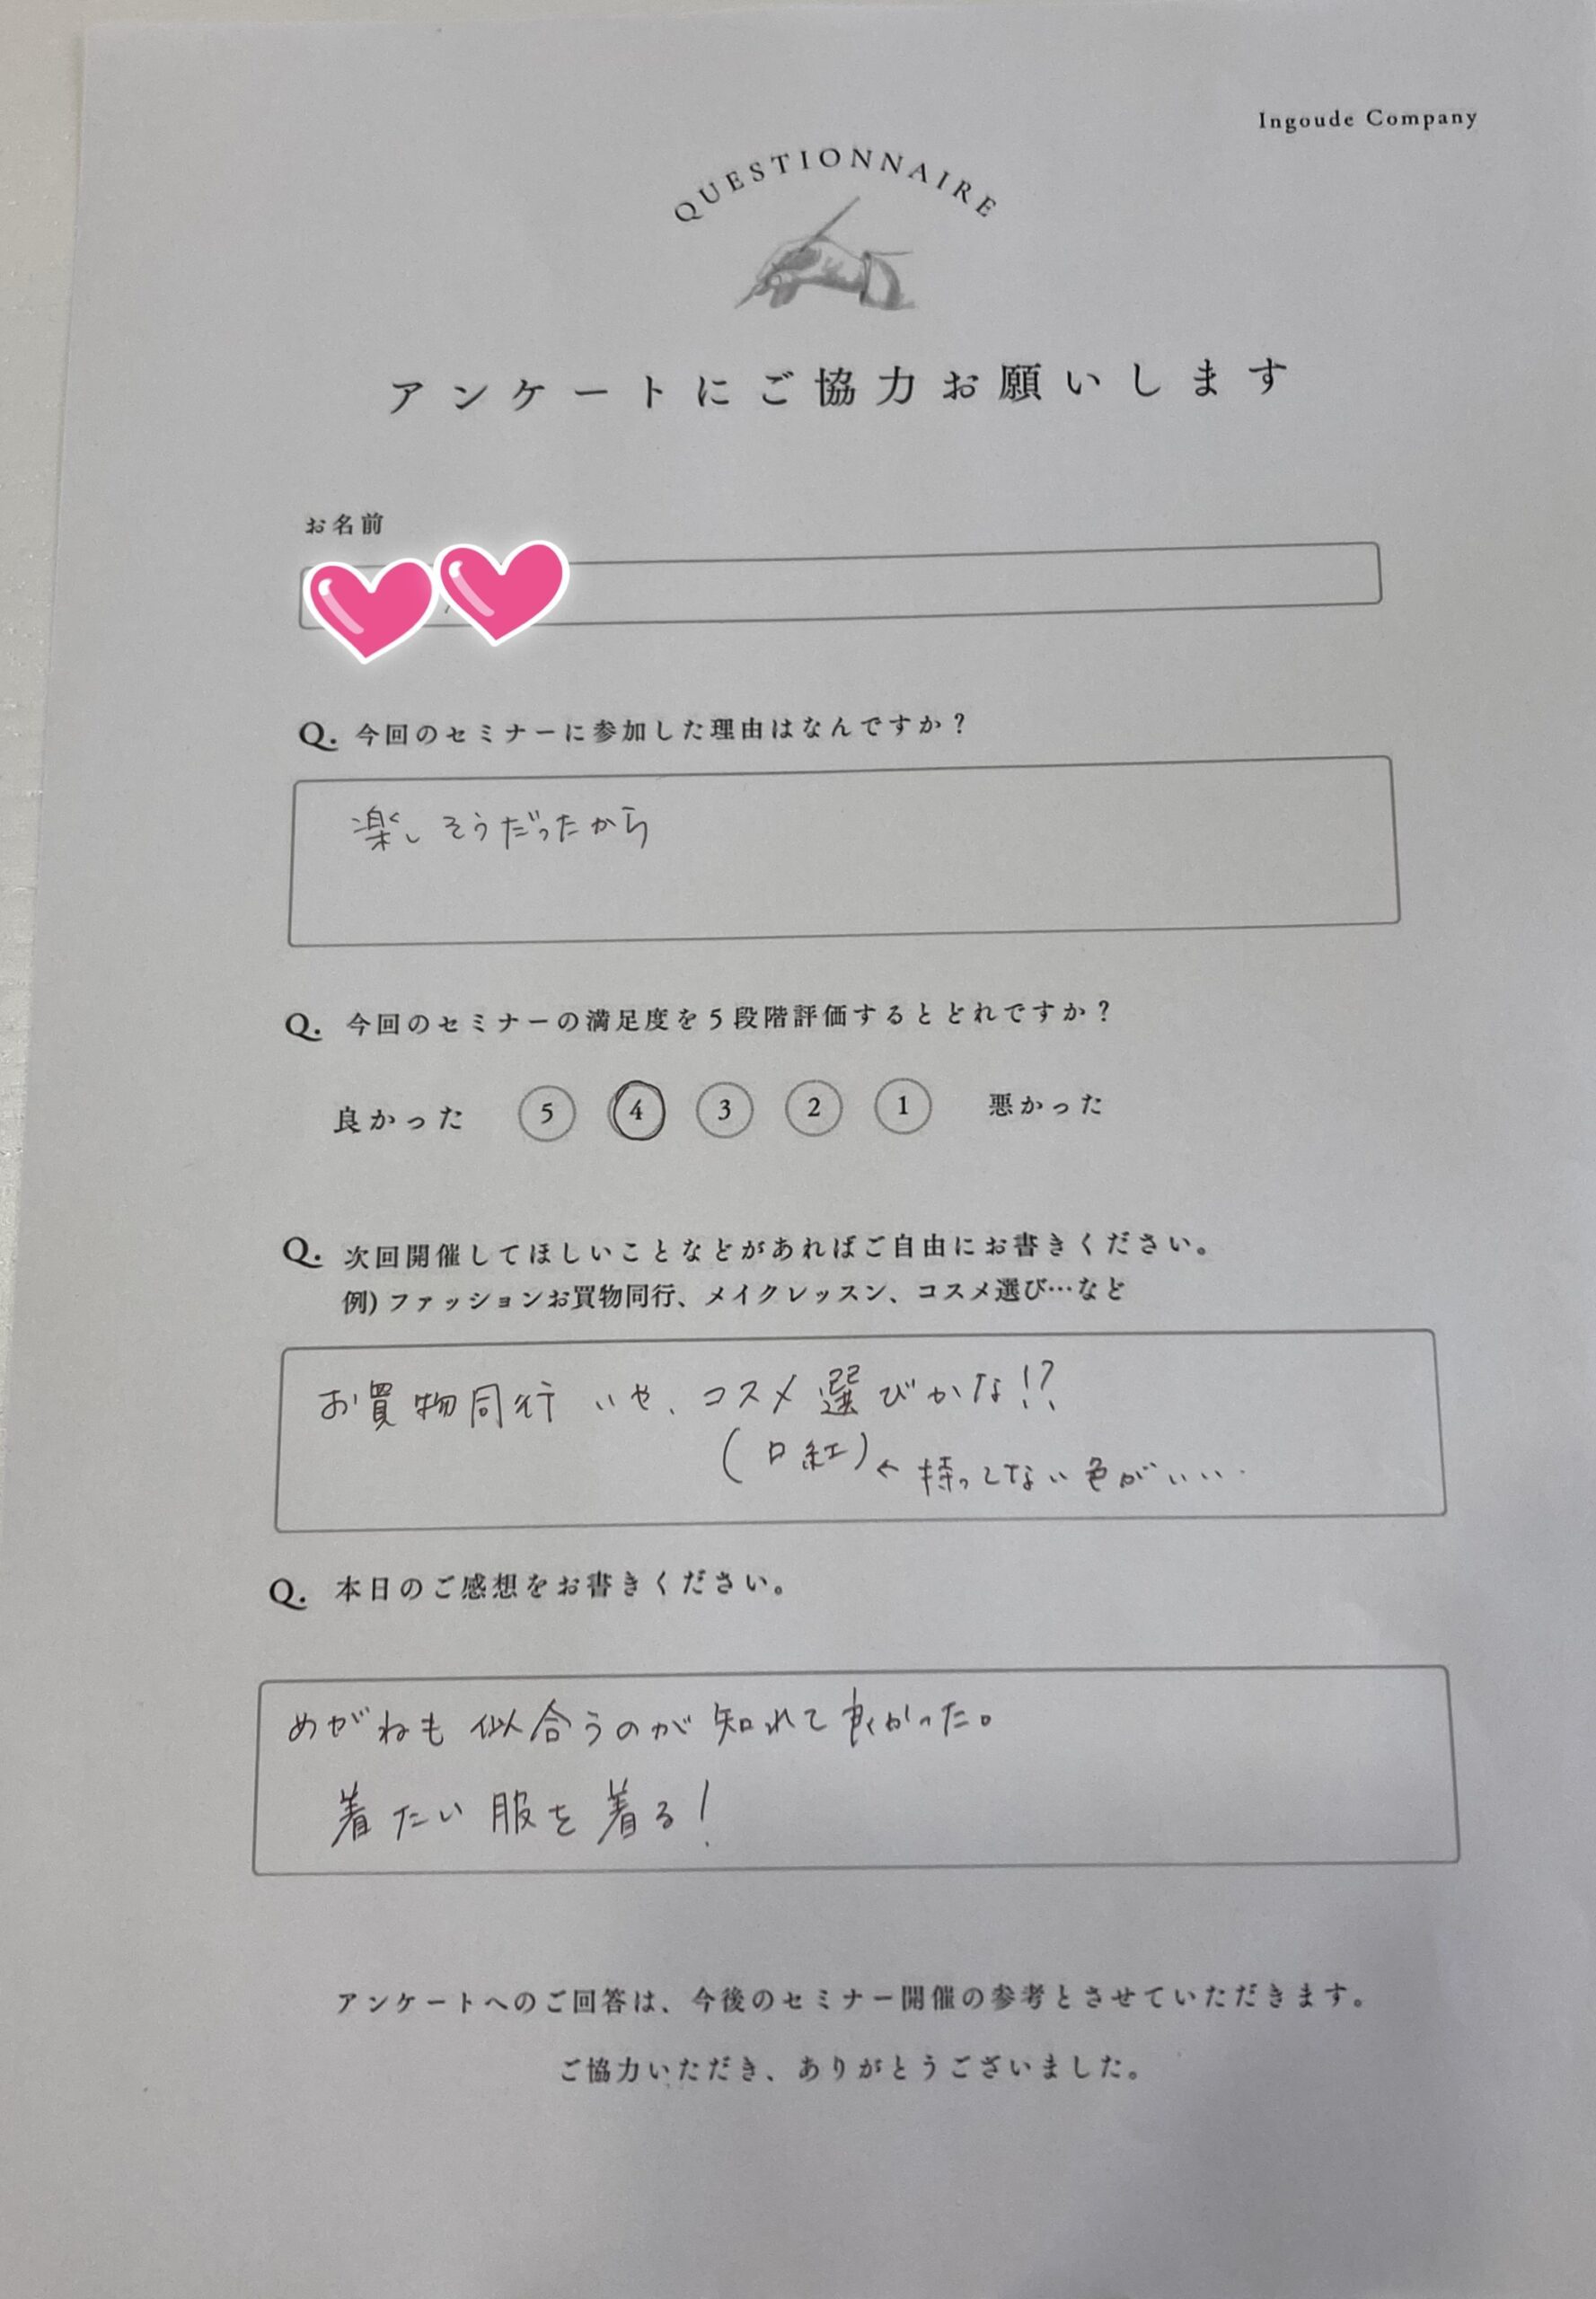 Ingoude Company
QUESTIONNAIRE
アンケートにご協力お願いします
お名前
Q. 今回のセミナーに参加した理由はなんですか？
楽しそうだったから
Q. 今回のセミナーの満足度を5段階評価するとどれですか？
良かった 5 4 3 2 1 悪かった
Q. 次回開催してほしいことなどがあればご自由にお書きください。
例) ファッションお買物同行、メイクレッスン、コスメ選び…など
お買物同行 いや、コスメ選びかな!?
(口紅)← 持ってない色がいい..
Q. 本日のご感想をお書きください。
めがねも似合うのが知れて良かった。
着たい服を着る!
アンケートへのご回答は、今後のセミナー開催の参考とさせていただきます。
ご協力いただき、ありがとうございました。